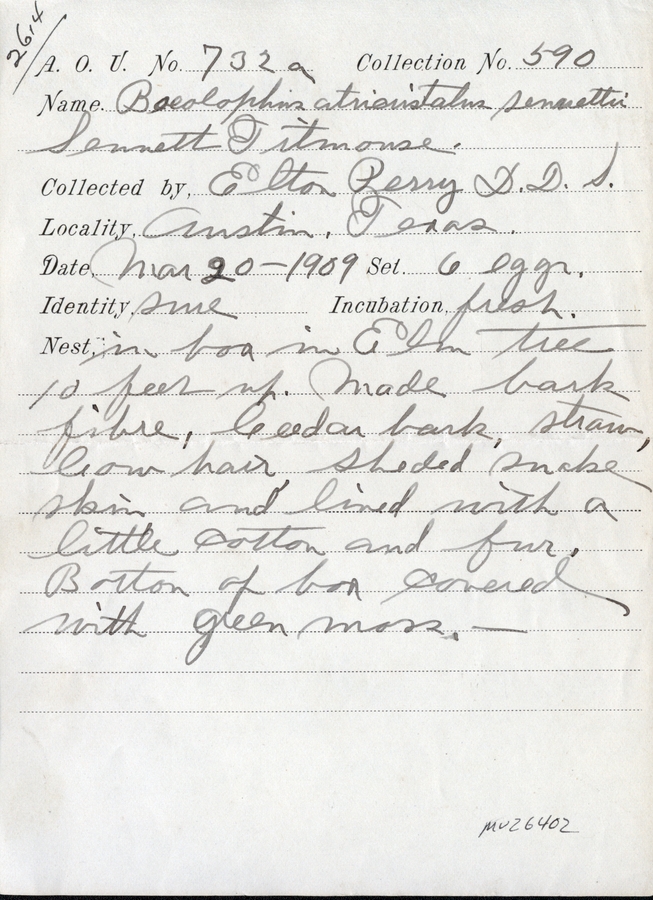 2614
A. O. U. No. 732a Collection No. 590
Name. Baeolophus atricristatus sennetti
Sennett Titmouse.
Collected by, Elton Perry D.D.S.
Locality, Austin, Texas.
Date, Mar 20-1909 Set. 6 eggs.
Identity, sure Incubation, fresh.
Nest, in box in Elm tree
10 feet up. Made bark
fibre, Ceedar bark, straw,
Cow hair, Sheded snake
skin and lined with a
little cotton and fur.
Botton of box covered
with green moss. —
MV26402